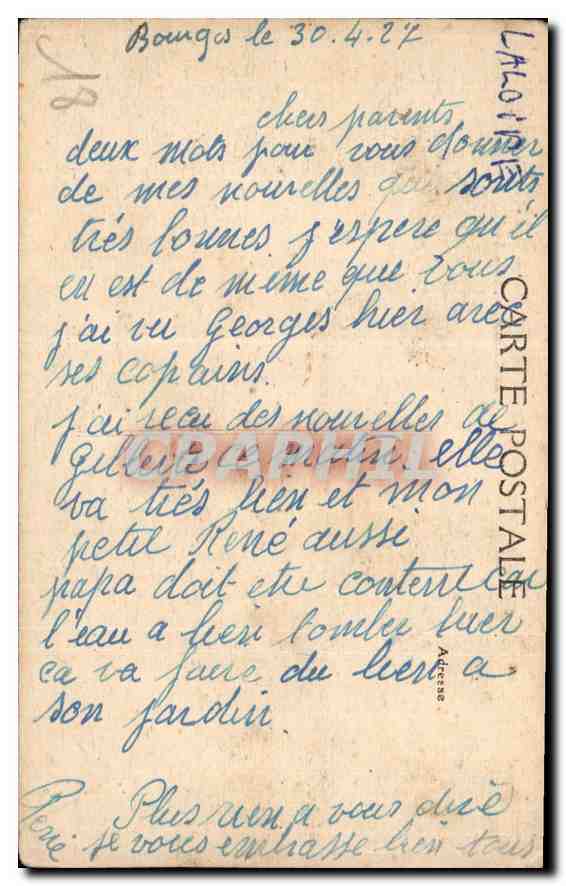 Bourges le 30.4.27
18
LALOIRE
chers parents
deux mots pour vous donner
de mes nouvelles qui sonts
très bonnes j'espere qu'il
en est de meme que vous
j'ai vu Georges hier avec
ses copains.
j'ai recu des nouvelles de
Gilberte ce matin. elle
va très bien et mon
petit René aussi
papa doit etre content car
l'eau a bien tomber hier
ca va faire du bien a
son jardin
Plus rien a vous dire
je vous embrasse bien tous
René
CARTE POSTALE
Adresse
CPAPHIL